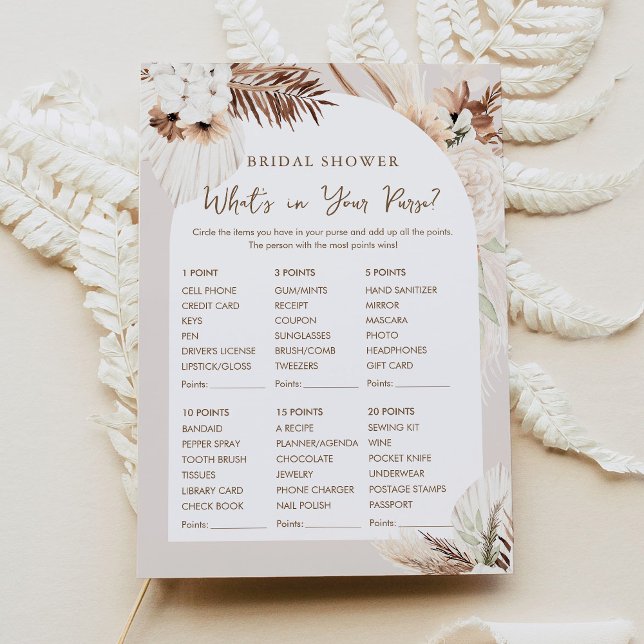 BRIDAL SHOWER
What's in Your Purse?
Circle the items you have in your purse and add up all the points.
The person with the most points wins!
1 POINT
CELL PHONE
CREDIT CARD
KEYS
PEN
DRIVER'S LICENSE
LIPSTICK/GLOSS
Points:
3 POINTS
GUM/MINTS
RECEIPT
COUPON
SUNGLASSES
BRUSH/COMB
TWEEZERS
Points:
5 POINTS
HAND SANITIZER
MIRROR
MASCARA
PHOTO
HEADPHONES
GIFT CARD
Points:
10 POINTS
BANDAID
PEPPER SPRAY
TOOTH BRUSH
TISSUES
LIBRARY CARD
CHECK BOOK
Points:
15 POINTS
A RECIPE
PLANNER/AGENDA
CHOCOLATE
JEWELRY
PHONE CHARGER
NAIL POLISH
Points:
20 POINTS
SEWING KIT
WINE
POCKET KNIFE
UNDERWEAR
POSTAGE STAMPS
PASSPORT
Points: